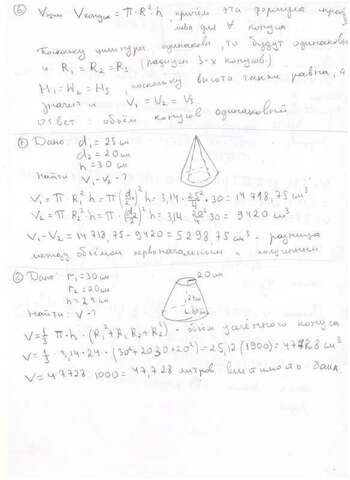 V конуса = π·R²·h причём эта формула
для ∀ конуса
цилиндры одинаковы, то будут одинаковы
и R₁ = R₂ = R₃ (радиусы 3-х конусов)
H₁ = H₂ = H₃, поскольку высота также равна, а
значит и V₁ = V₂ = V₃
ответ: объём конусов одинаковый
Дано: d₁ = 25 см
d₂ = 20 см
h = 30 см
Найти: V₁-V₂ - ?
V₁ = π R₁² h = π (d₁/2)² h = 3,14 · 25²/4 · 30 = 14718,75 см³
V₂ = π R₂² h = π (d₂/2)² h = 3,14 · 20²/4 · 30 = 9420 см³
V₁ - V₂ = 14718,75 - 9420 = 5298,75 см³ - разница
между объёмом первоначальным и полученным.
Дано: r₁ = 30 см
r₂ = 20 см
h = 24 см
Найти: V - ?
20 см
V = 1/3 π·h · (R₁² + R₁R₂ + R₂²) - объём усечённого конуса
V = 1/3 · 3,14 · 24 · (30² + 20·30 + 20²) = 25,12 (1900) = 47728 см³
V = 47728 : 1000 = 47,728 литров вместимость бака